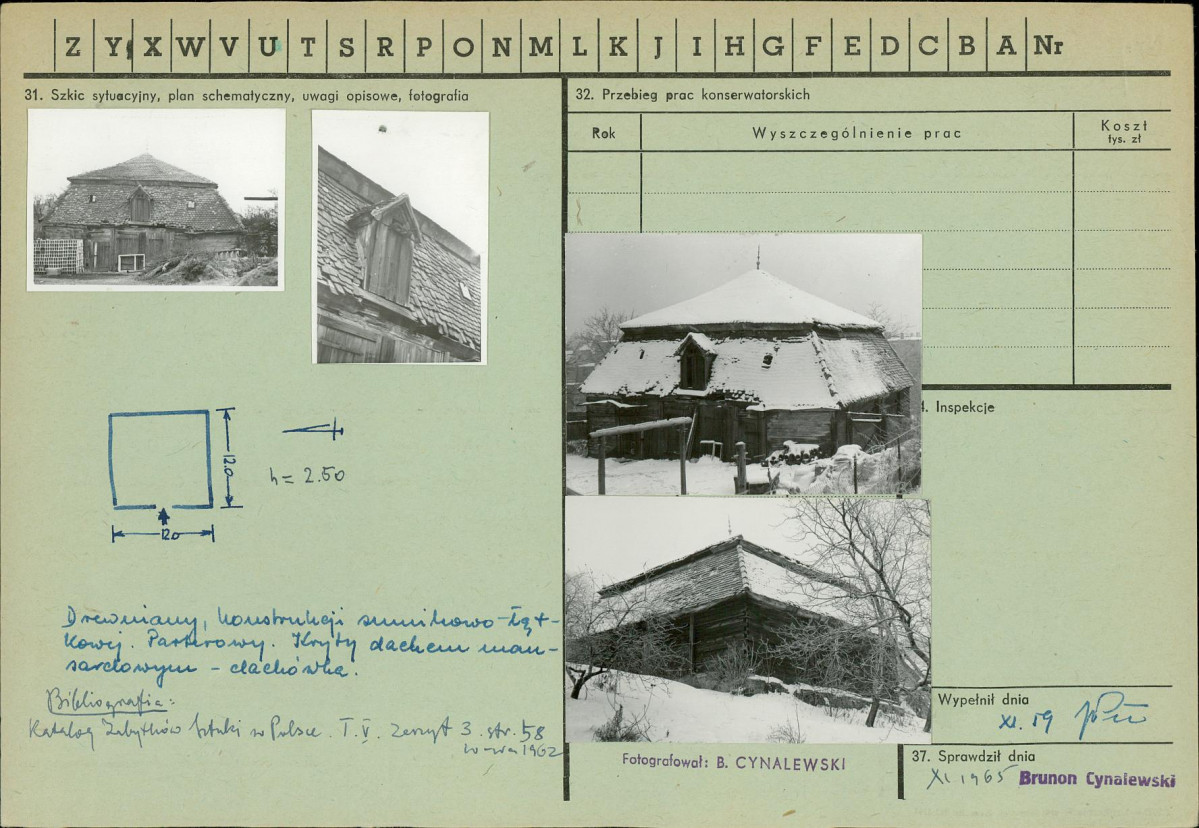 Z Y X W V U T S R P O N M L K J I H G F E D C B A Nr
31. Szkic sytuacyjny, plan schematyczny, uwagi opisowe, fotografia
12.0
h = 2.50
12.0
Drewniany, konstrukcji sumikowo-łąt-
kowej. Parterowy. Kryty dachem man-
sardowym - dachówka.
Bibliografia:
Katalog Zabytków Sztuki w Polsce. T. V. Zeszyt 3. str. 58
W-wa 1962
32. Przebieg prac konserwatorskich
Rok
Wyszczególnienie prac
Koszt
tys. zł
Inspekcje
Fotografował: B. CYNALEWSKI
Wypełnił dnia
XI. 59
37. Sprawdził dnia
XI 1965 Brunon Cynalewski